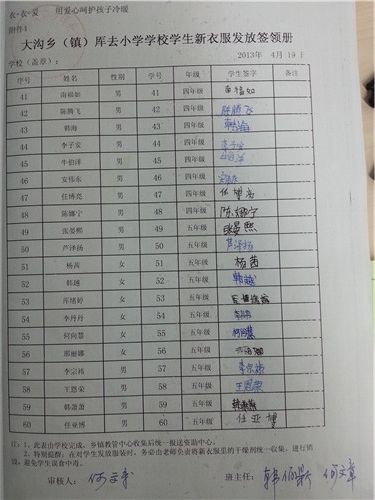 衣·衣·爱 用爱心呵护孩子冷暖
附件4
大沟乡（镇）厍去小学学校学生新衣服发放签领册
学校（盖章）： 2013年 4月19日
序号 姓名 性别 序号 年级 学生签字 备注
41 南福如 男 41 四年级 南福如
42 陈腾飞 男 42 四年级 陈腾飞
43 韩海 男 43 四年级 韩海
44 李子安 男 44 四年级 李子安
45 牛伯泽 男 45 四年级
46 安伟东 男 46 四年级
47 任博亮 男 47 四年级
48 陈娜宁 男 48 四年级 陈娜宁
49 张晏熙 男 49 五年级 张晏熙
50 芦泽扬 男 50 五年级 芦泽扬
51 杨茜 女 51 五年级 杨茜
52 韩越 女 52 五年级 韩越
53 厍绪婷 女 53 五年级
54 李丹丹 女 54 五年级
55 何向慧 女 55 五年级 何向慧
56 邢丽娜 女 56 五年级
57 李宗祎 男 57 五年级 李宗祎
58 王恩荣 男 58 五年级 王恩荣
59 韩萧萧 男 59 五年级 韩萧萧
60 任亚博 男 60 五年级
注：1、此表由学校完成，乡镇教管中心收集后统一报送资助中心。
2、特别提醒，在对学生发放服装时，务必由老师负责将新衣服里的干燥剂统一收集，进行销
毁，避免学生误食中毒。
审核人： 班主任：